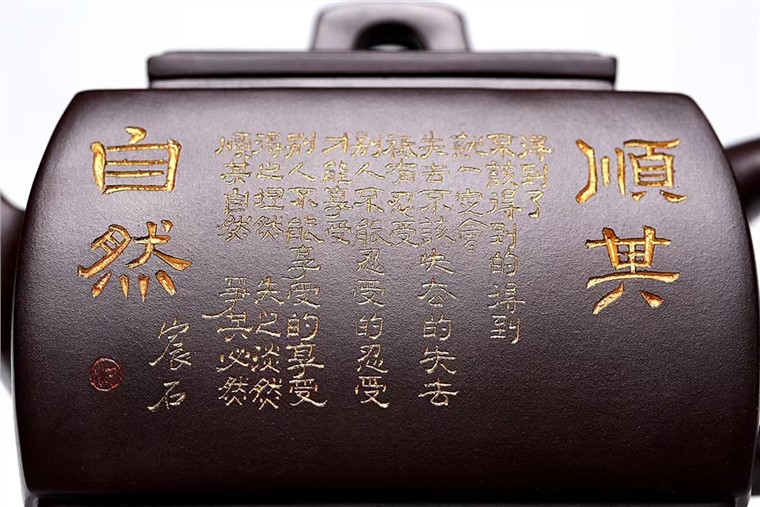 順其
得到了
不該得到的得到
就一定會
失去不該失去的失去
祗有忍受
別人不能忍受的忍受
才能享受
別人不能享受的享受
得之坦然 失之淡然
順其自然 爭其必然
自然
宸石